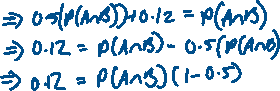 ⇒ 0.5(P(A∩B))+0.12 = P(A∩B)
⇒ 0.12 = P(A∩B) - 0.5(P(A∩B)
⇒ 0.12 = P(A∩B)(1-0.5)